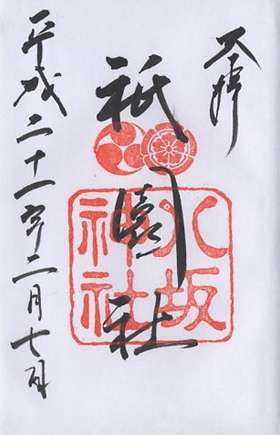 奉拝
祇園社
八坂
神社
平成二十一年二月七日